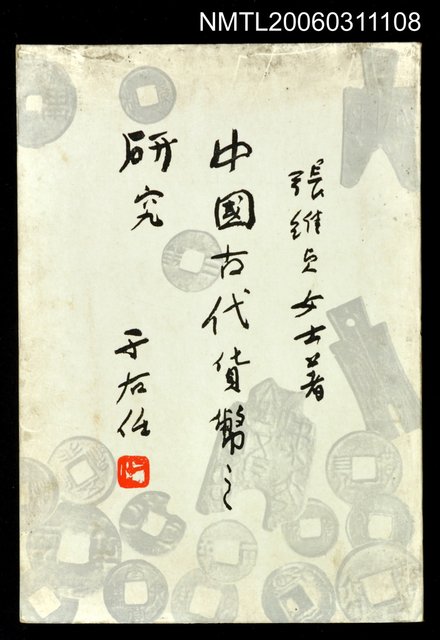 NMTL20060311108
張維貞女士著
中國古代貨幣之
研究
于右任